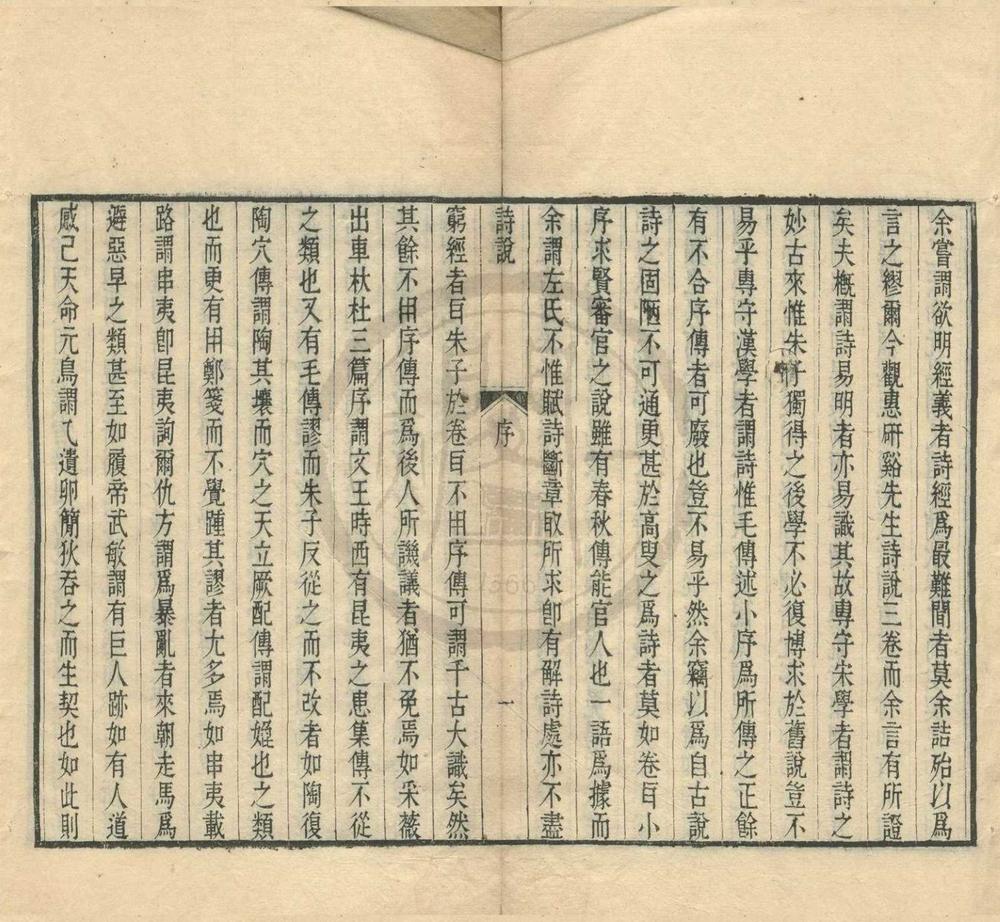 余嘗謂欲明經義者詩經爲最難間者莫余詰殆以爲
言之繆爾今觀惠研谿先生詩說三卷而余言有所證
矣夫槪謂詩易明者亦易識其故專守宋學者謂詩之
妙古來惟朱子獨得之後學不必復博求於舊說豈不
易乎專守漢學者謂詩惟毛傳述小序爲所傳之正餘
有不合序傳者可廢也豈不易乎然余竊以爲自古說
詩之固陋不可通更甚於高叟之爲詩者莫如卷𦣻小
序求賢審官之說雖有春秋傳能官人也一語爲據而
余謂左氏不惟賦詩斷章取所求卽有解詩處亦不盡
詩說
序
一
窮經者𦣻朱子於卷𦣻不用序傳可謂千古大識矣然
其餘不用序傳而爲後人所譏議者猶不免焉如采薇
出車杕杜三篇序謂文王時西有昆夷之患集傳不從
之類也又有毛傳謬而朱子反從之而不改者如陶復
陶穴傳謂陶其壤而穴之天立厥配傳謂配媲也之類
也而更有用鄭箋而不覺踵其謬者尢多焉如串夷載
路謂串夷卽昆夷詢爾仇方謂爲暴亂者來朝走馬爲
避惡早之類甚至如履帝武敏謂有巨人跡如有人道
感己天命元鳥謂鳦遺卵簡狄吞之而生契也如此則